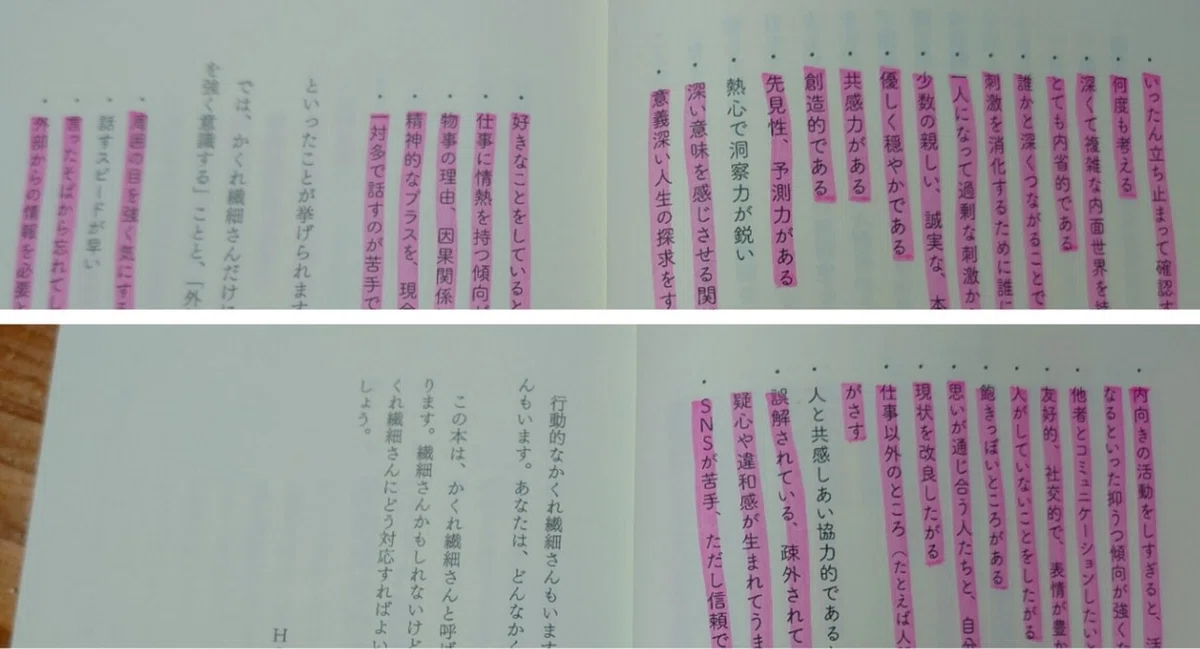 ・いったん立ち止まって確認す
・何度も考える
・深くて複雑な内面世界を
・とても内省的である
・誰かと深くつながることで
・刺激を消化するために誰に
・一人になって過剰な刺激か
・少数の親しい、誠実な、本
・優しく穏やかである
・共感力がある
・創造的である
・先見性、予測力がある
・熱心で洞察力が鋭い
・深い意味を感じさせる関
・意義深い人生の探求をす
・好きなことをしていると
・仕事に情熱を持つ傾向が
・物事の理由、因果関係
・精神的なプラスを、現
・一対多で話すのが苦手で
といったことが挙げられます
では、かくれ繊細さんだけに
を強く意識する」ことと、「外
・周囲の目を強く気にする
・話すスピードが早い
・言ったそばから忘れてし
・外部からの情報を必要と
・内向きの活動をしすぎると、活
なるといった抑うつ傾向が強くな
・他者とコミュニケーションしたいと
・友好的、社交的で、表情が豊か
・人がしていないことをしたがる
・飽きっぽいところがある
・思いが通じ合う人たちと、自分
・現状を改良したがる
・仕事以外のところ（たとえば人
がさす
・人と共感しあい協力的である
・誤解されている、疎外されて
疑心や違和感が生まれてうま
・SNSが苦手、ただし信頼で
行動的なかくれ繊細さんもいます
んもいます。あなたは、どんなかく
この本は、かくれ繊細さんと呼ば
ります。繊細さんかもしれないけど
くれ繊細さんにどう対応すればよい
しょう。
H